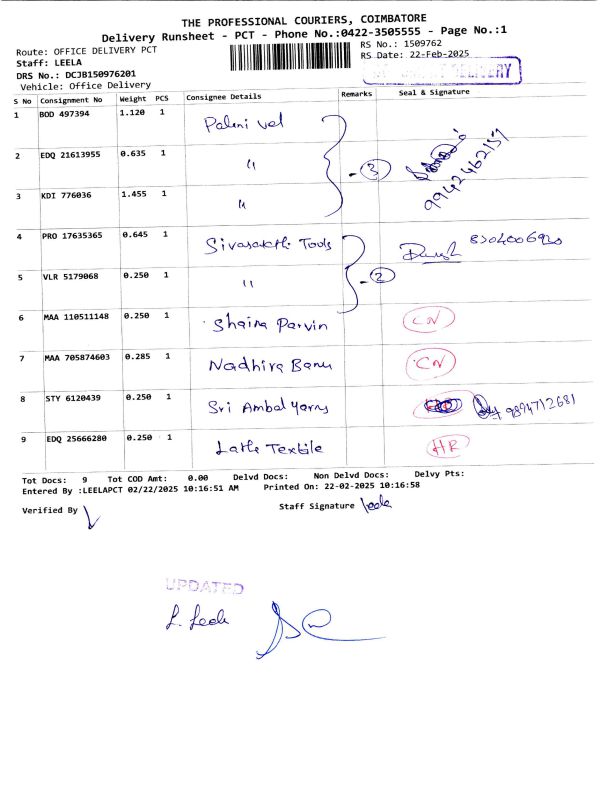 THE PROFESSIONAL COURIERS, COIMBATORE
Delivery Runsheet - PCT - Phone No.:0422-3505555 - Page No.:1
Route: OFFICE DELIVERY PCT
RS No.: 1509762
Staff: LEELA
RS Date: 22-Feb-2025
DRS No.: DCJB150976201
DELIVERY
Vehicle: Office Delivery
S No Consignment No Weight PCS Consignee Details Remarks Seal & Signature
1 BOD 497394 1.120 1 Palani vel
2 EDQ 21613955 0.635 1 " 3 9942462151
3 KDI 776036 1.455 1 "
4 PRO 17635365 0.645 1 Sivasakthi Tools
5 VLR 5179068 0.250 1 " 2
6 MAA 110511148 0.250 1 Shaira Parvin CN
7 MAA 705874603 0.285 1 Nadhira Banu CN
8 STY 6120439 0.250 1 Sri Ambal yarns 9894712681
9 EDQ 25666280 0.250 1 Latle Textile HR
Tot Docs: 9 Tot COD Amt: 0.00 Delvd Docs: Non Delvd Docs: Delvy Pts:
Entered By :LEELAPCT 02/22/2025 10:16:51 AM Printed On: 22-02-2025 10:16:58
Verified By Staff Signature Leela
UPDATED
L. Leela